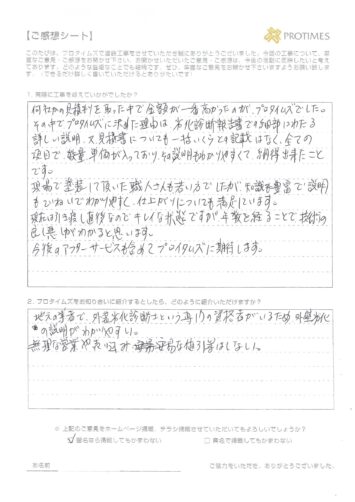 【ご感想シート】
PROTIMES
このたびは、プロタイムズで塗装工事をさせていただき誠にありがとうございました。今回の工事について、率直なご意見・ご感想をお聞かせ下さい。お聞かせいただいたご意見・ご感想は、今後の活動に反映したいと考えております。どのような些細なことでも結構です、ぜひ、率直なご意見をお聞かせ下さいますようお願い致します。（できるだけ詳しく書いていただけるとありがたいです）
1．実際に工事を終えていかがでしたか？
何社かの見積りを取った中で金額が一番高かったのが、プロタイムズでした。
その中でプロタイムズに決めた理由は、劣化診断報告書での細部にわたる
詳しい説明、又見積書についても一括いくらとの記載はなく、全ての
項目で、数量、単価が入っており、その説明もわかりやすくて、納得出来たこと
です。
現場で塗装して頂いた職人さんも若い方でしたが、知識も豊富で説明
もていねいでわかりやすく、仕上がりについても満足しています。
現在は引き渡し直後なのでキレイな状態ですが、年数を経ることで
良し悪しがわかると思います。
今後のアフターサービスも含めてプロタイムズに期待します。
2．プロタイムズをお知り合いに紹介するとしたら、どのように紹介いただけますか？
地元の業者で、外装劣化診断士という専門の資格者がいるため 外壁劣化
の説明がわかりやすい。
無理な営業や 安易な値引等はしない。
※ 上記のご意見をホームページ掲載、チラシ掲載させていただいてもよろしいでしょうか？
匿名なら掲載してもかまわない
実名で掲載してもかまわない
お名前
ご協力をいただき、ありがとうございました。